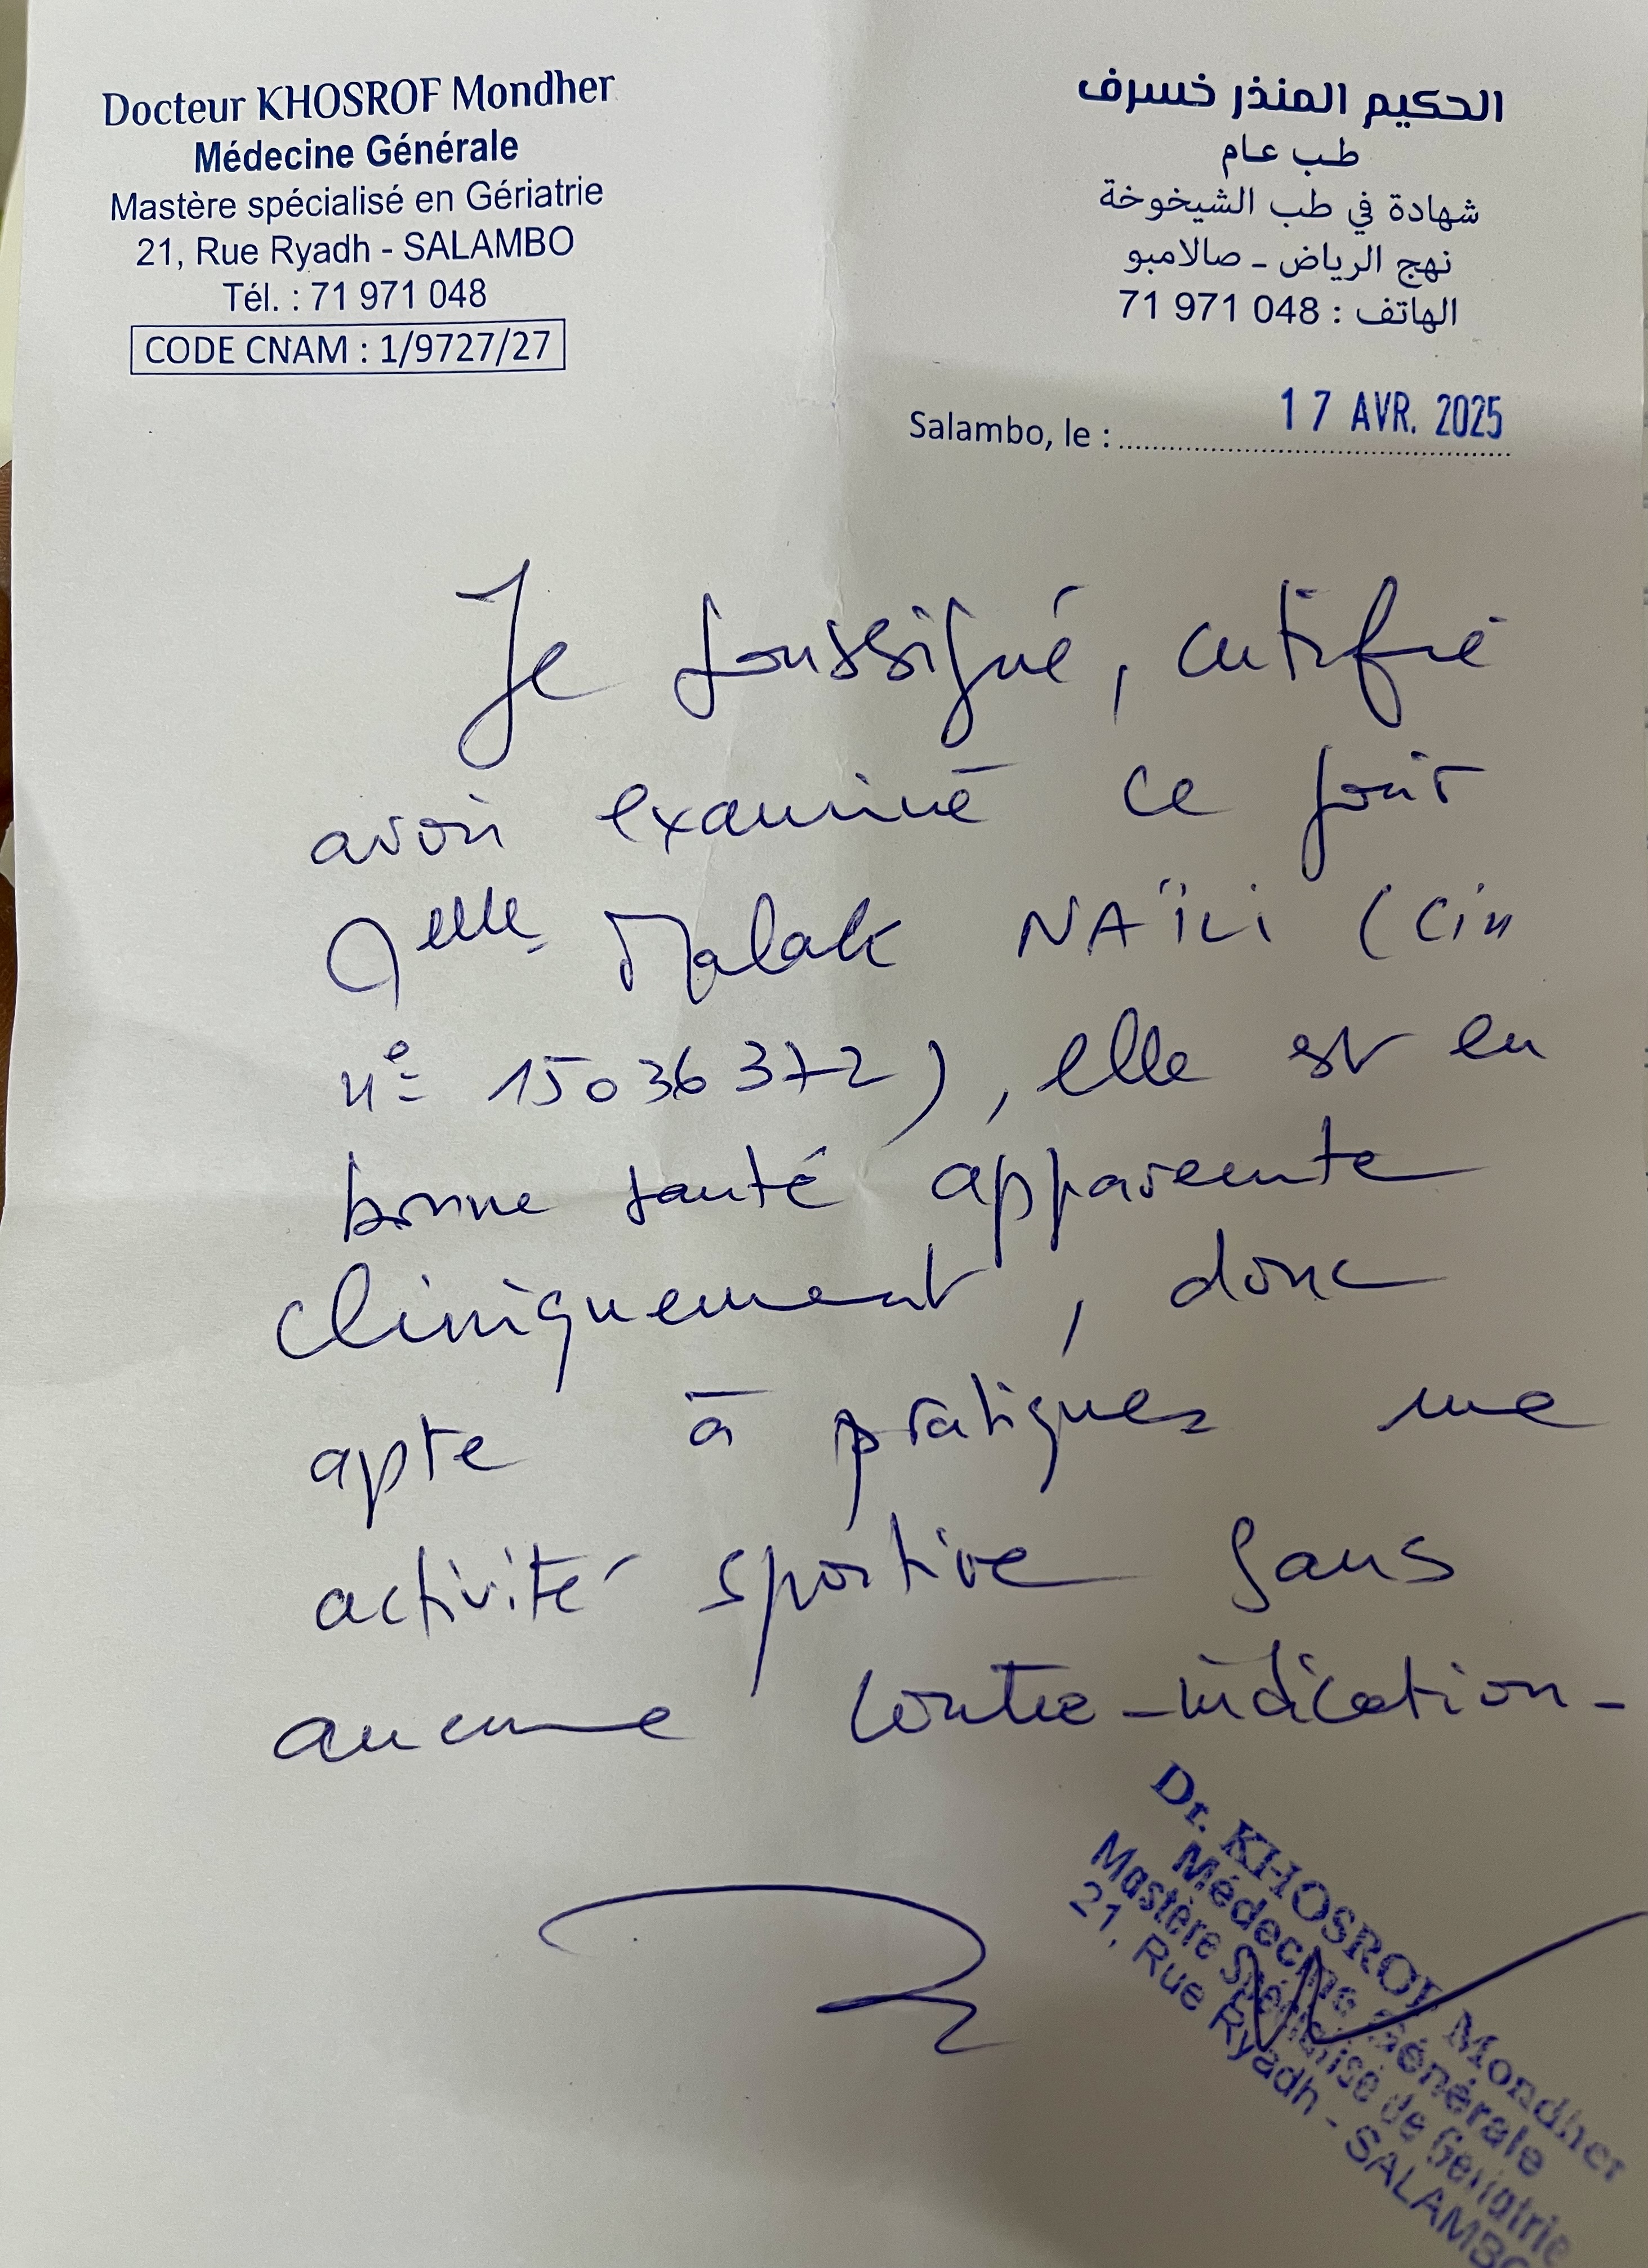 Docteur KHOSROF Mondher
Médecine Générale
Mastère spécialisé en Gériatrie
21, Rue Ryadh - SALAMBO
Tél. : 71 971 048
CODE CNAM : 1/9727/27
الحكيم المنذر خسرف
طب عام
شهادة في طب الشيخوخة
نهج الرياض - صالامبو
الهاتف : 048 971 71
Salambo, le : 17 AVR. 2025
Je soussigné, certifie
avoir examiné ce jour
Melle Malak NAÏLI (Cin
n° 15036372), elle est en
bonne santé apparente
cliniquement, donc
apte à pratiquer une
activité sportive sans
aucune contre-indication-
Dr. KHOSROF Mondher
Médecine Générale
Mastère Spécialisé de Gériatrie
21, Rue Ryadh - SALAMBO